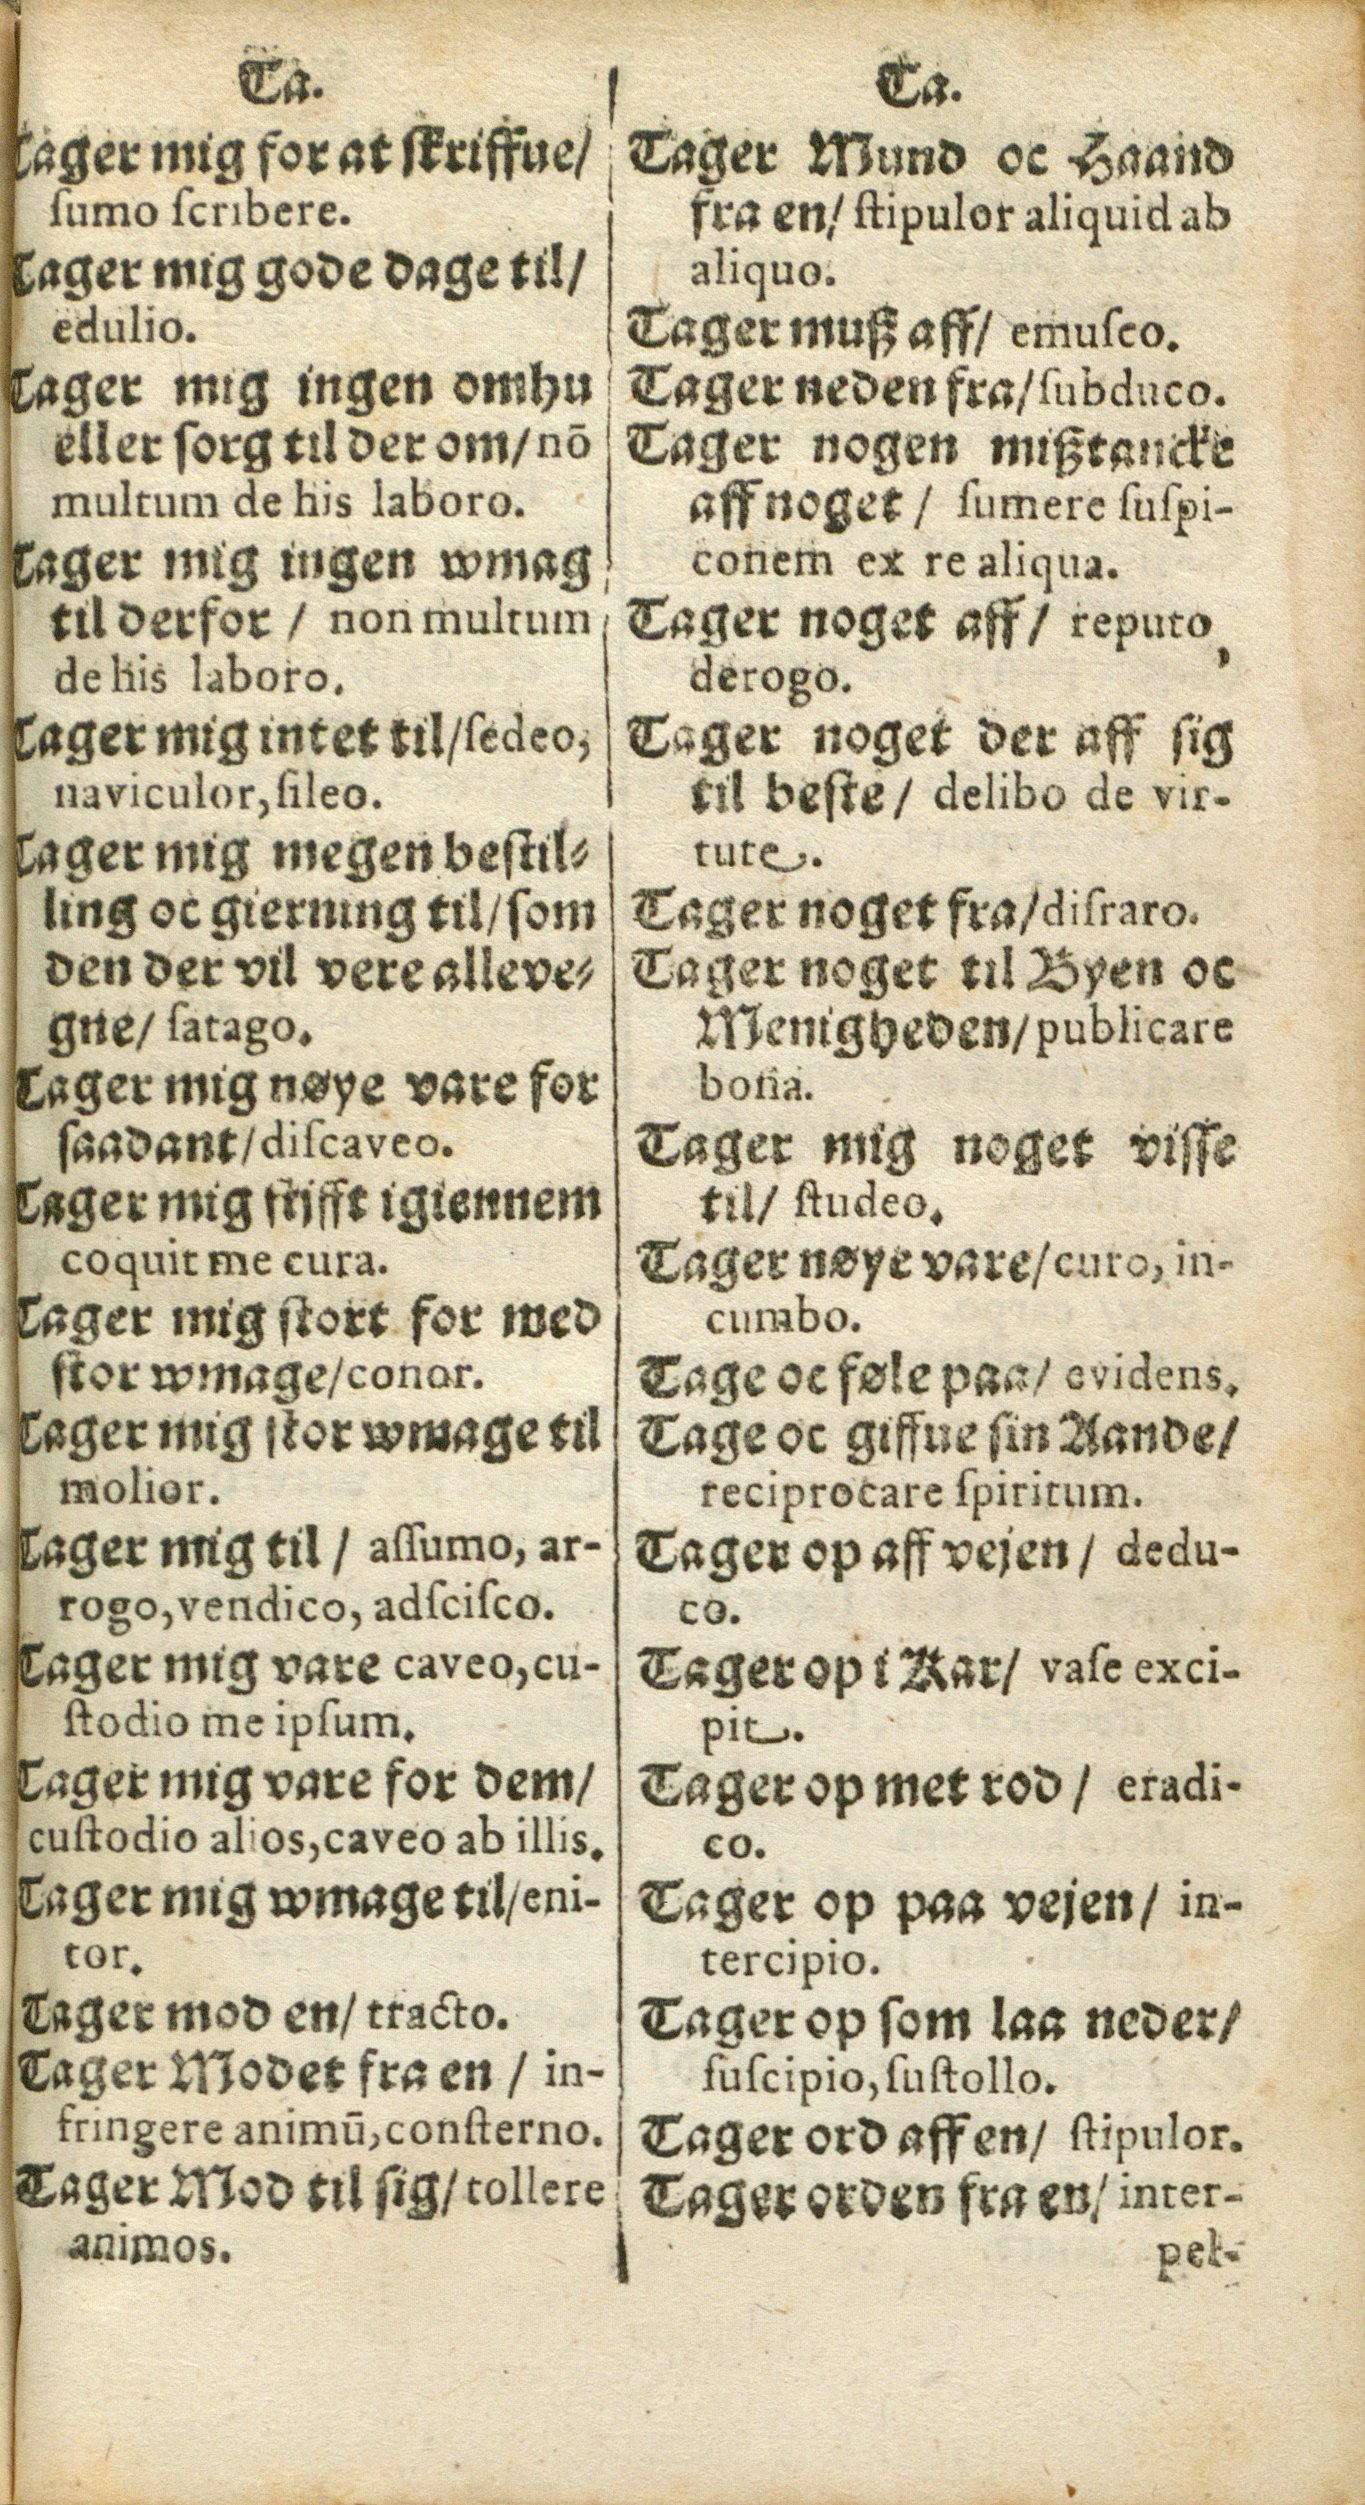 Ta.
Tager mig for at ſkriffue/
ſumo ſcribere.
Tager mig gode dage til/
edulio.
Tager mig ingen omhu
eller ſorg til der om/ nō
multum de his laboro.
Tager mig ingen wmag
til derfor / non multum
de his laboro.
Tager mig intet til/ ſedeo,
naviculor, ſileo.
Tager mig megen beſtil⸗
ling oc gierning til/ ſom
den der vil vere alleve⸗
gne/ ſatago.
Tager mig nøye vare for
ſaadant/ diſcaveo.
Tager mig ſtifft igiennem
coquit me cura.
Tager mig ſtort for med
ſtor wmage/ conor.
Tager mig ſtor wmage til
molior.
Tager mig til / aſſumo, ar-
rogo, vendico, adſciſco.
Tager mig vare caveo, cu-
ſtodio me ipſum.
Tager mig vare for dem/
cuſtodio alios, caveo ab illis.
Tager mig wmage til/ eni-
tor.
Tager mod en/ tracto.
Tager Modet fra en / in-
fringere animū, conſterno.
Tager Mod til ſig/ tollere
animos.
Ta.
Tager Mund oc Haand
fra en/ ſtipulor aliquid ab
aliquo.
Tager muß aff/ emuſco.
Tager neden fra/ ſubduco.
Tager nogen mißtancke
aff noget / ſumere ſuſpi-
conem ex re aliqua.
Tager noget aff / reputo,
derogo.
Tager noget der aff ſig
til beſte / delibo de vir-
tute.
Tager noget fra/ diſraro.
Tager noget til Byen oc
Menigheden/ publicare
bona.
Tager mig noget viſſe
til/ ſtudeo.
Tager nøye vare/ curo, in-
cumbo.
Tage oc føle paa/ evidens.
Tage oc giffue ſin Aande/
reciprocare ſpiritum.
Tager op aff vejen / dedu-
co.
Tager op i Kar/ vaſe exci-
pit.
Tager op met rod / eradi-
co.
Tager op paa vejen / in-
tercipio.
Tager op ſom laa neder/
ſuſcipio, ſuſtollo.
Tager ord aff en/ ſtipulor.
Tager orden fra en/ inter-
pel-